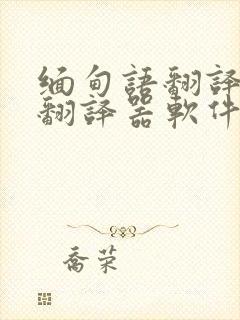 缅甸語翻譯
翻譯器軟件
喬荣